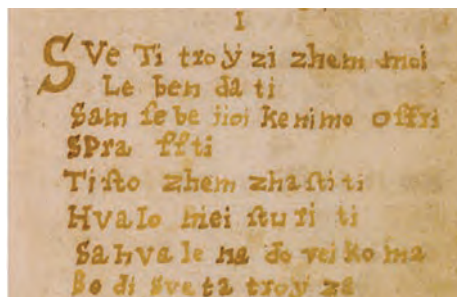 I
SVe Ti troÿ zi zhem moi
Le ben da ti
Sam ſe be iioi ke nimo offri
SPra fſti
Ti ſto zhem zhaſti ti
Hvalo niei ſtu ri ti
Sa hva le na do vei ko ma
Bo di Sve ta troÿ za